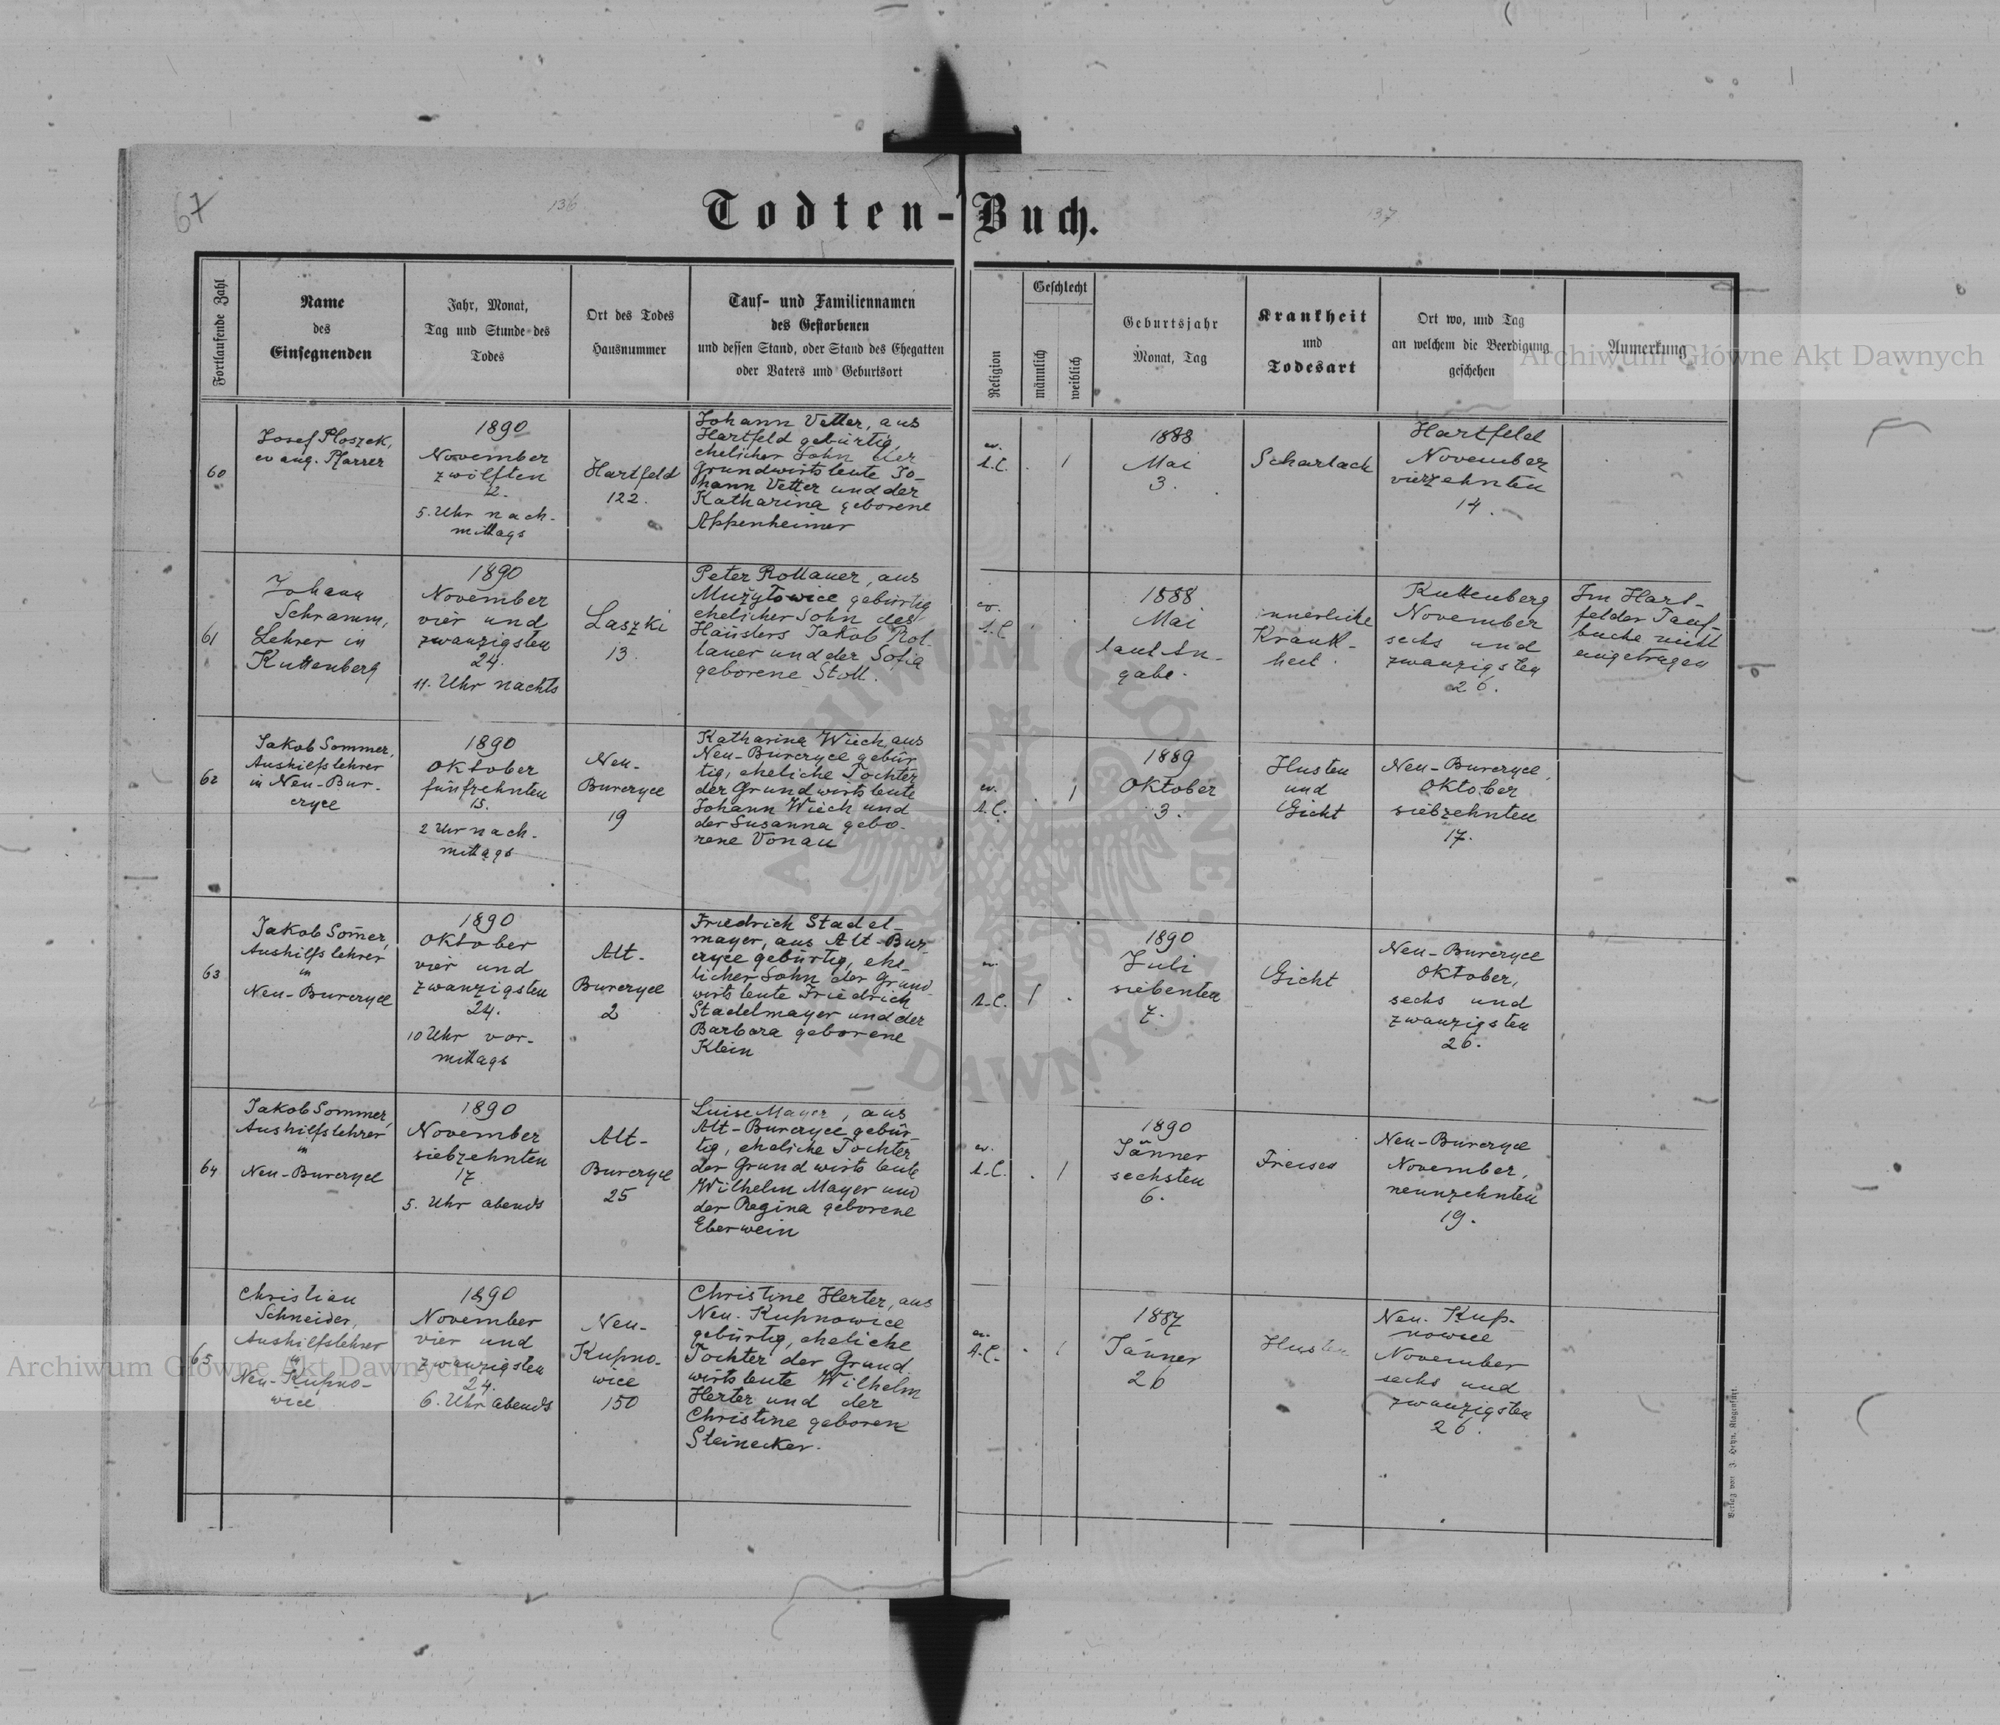 67
136
137
Todten-Buch.
Fortlaufende Zahl
Name
des
Einsegnenden
Jahr, Monat,
Tag und Stunde des
Todes
Ort des Todes
Hausnummer
Tauf- und Familiennamen
des Gestorbenen
und dessen Stand, oder Stand des Ehegatten
oder Vaters und Geburtsort
Religion
Geschlecht
männlich
weiblich
Geburtsjahr
Monat, Tag
Krankheit
und
Todesart
Ort wo, und Tag
an welchem die Beerdigung
geschehen
Anmerkung
Archiwum Główne Akt Dawnych
60
Josef Ploszek,
evang. Pfarrer
1890
November
zwölften
12.
5. Uhr nach-
mittags
Hartfeld
122.
Johann Vetter, aus
Hartfeld gebürtig,
ehelicher Sohn der
Grundwirtsleute Jo-
hann Vetter und der
Katharina geborene
Appenheimer
ev.
A.C.
1888
Mai
3.
Scharlach
Hartfeld
November
vierzehnten
14.
61
Johann
Schramm,
Lehrer in
Kuttenberg
1890
November
vier und
zwanzigsten
24.
11. Uhr nachts
Laszki
13.
Peter Rollauer, aus
Mużyłowice gebürtig
ehelicher Sohn des
Häuslers Jakob Rol-
lauer und der Sofia
geborene Stoll.
ev.
A.C.
1888
Mai
laut An-
gabe.
innerliche
Krank-
heit.
Kuttenberg
November
sechs und
zwanzigsten
26.
Im Hart-
felder Tauf-
buche nicht
eingetragen
62
Jakob Sommer,
Aushilfslehrer
in Neu-Bur-
czyce
1890
Oktober
fünfzehnten
15.
2 Uhr nach-
mittags
Neu-
Burczyce
19
Katharina Wiich, aus
Neu-Burczyce gebür-
tig, eheliche Tochter
der Grundwirtsleute
Johann Wiich und
der Susanna gebo-
rene Vonau
ev.
A.C.
1889
Oktober
3.
Husten
und
Gicht
Neu-Burczyce,
Oktober
siebzehnten
17.
63
Jakob Som̄er,
Aushilfslehrer
in
Neu-Burczyce
1890
Oktober
vier und
zwanzigsten
24.
10 Uhr vor-
mittags
Alt-
Burczyce
2
Friedrich Stadel-
mayer, aus Alt-Bur-
czyce gebürtig, ehe-
licher Sohn der Grund-
wirtsleute Friedrich
Stadelmayer und der
Barbara geborene
Klein
ev.
A.C.
1890
Juli
siebenten
7.
Gicht
Neu-Burczyce
Oktober,
sechs und
zwanzigsten
26.
64
Jakob Sommer,
Aushilfslehrer
in
Neu-Burczyce
1890
November
siebzehnten
17
5. Uhr abends
Alt-
Burczyce
25
Luise Mayer, aus
Alt-Burczyce gebür-
tig, eheliche Tochter
der Grundwirtsleute
Wilhelm Mayer und
der Regina geborene
Eberwein
ev.
A.C.
1890
Jänner
sechsten
6.
Freisen
Neu-Burczyce
November,
neunzehnten
19.
65
Christian
Schneider,
Aushilfslehrer
in
Neu-Kupno-
wice
1890
November
vier und
zwanzigsten
24.
6. Uhr abends
Neu-
Kupno-
wice
150
Christine Herter, aus
Neu-Kupnowice
gebürtig, eheliche
Tochter der Grund
wirtsleute Wilhelm
Herter und der
Christine geboren
Steinecker.
ev.
A.C.
1887
Jänner
26
Husten
Neu-Kup-
nowice
November
sechs und
zwanzigsten
26.
Archiwum Główne Akt Dawnych
Verlag von J. Heyn, Klagenfurt.
ARCHIWUM GŁÓWNE AKT DAWNYCH